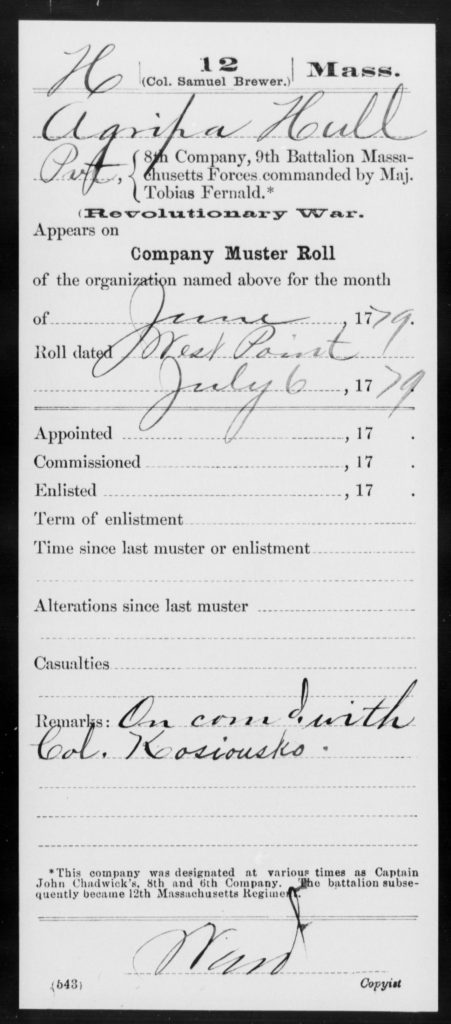 H | 12 | Mass.
(Col. Samuel Brewer.)
Agripa Hull
Pvt, { 8th Company, 9th Battalion Massa-
chusetts Forces commanded by Maj.
Tobias Fernald.*
(Revolutionary War.
Appears on
Company Muster Roll
of the organization named above for the month
of June, 1779.
Roll dated West Point
July 6, 1779
Appointed , 17 .
Commissioned , 17 .
Enlisted , 17 .
Term of enlistment
Time since last muster or enlistment
Alterations since last muster
Casualties
Remarks: On comd. with
Col. Kosiousko.
*This company was designated at various times as Captain
John Chadwick's, 8th and 6th Company. The battalion subse-
quently became 12th Massachusetts Regiment.
Ward
(543) Copyist